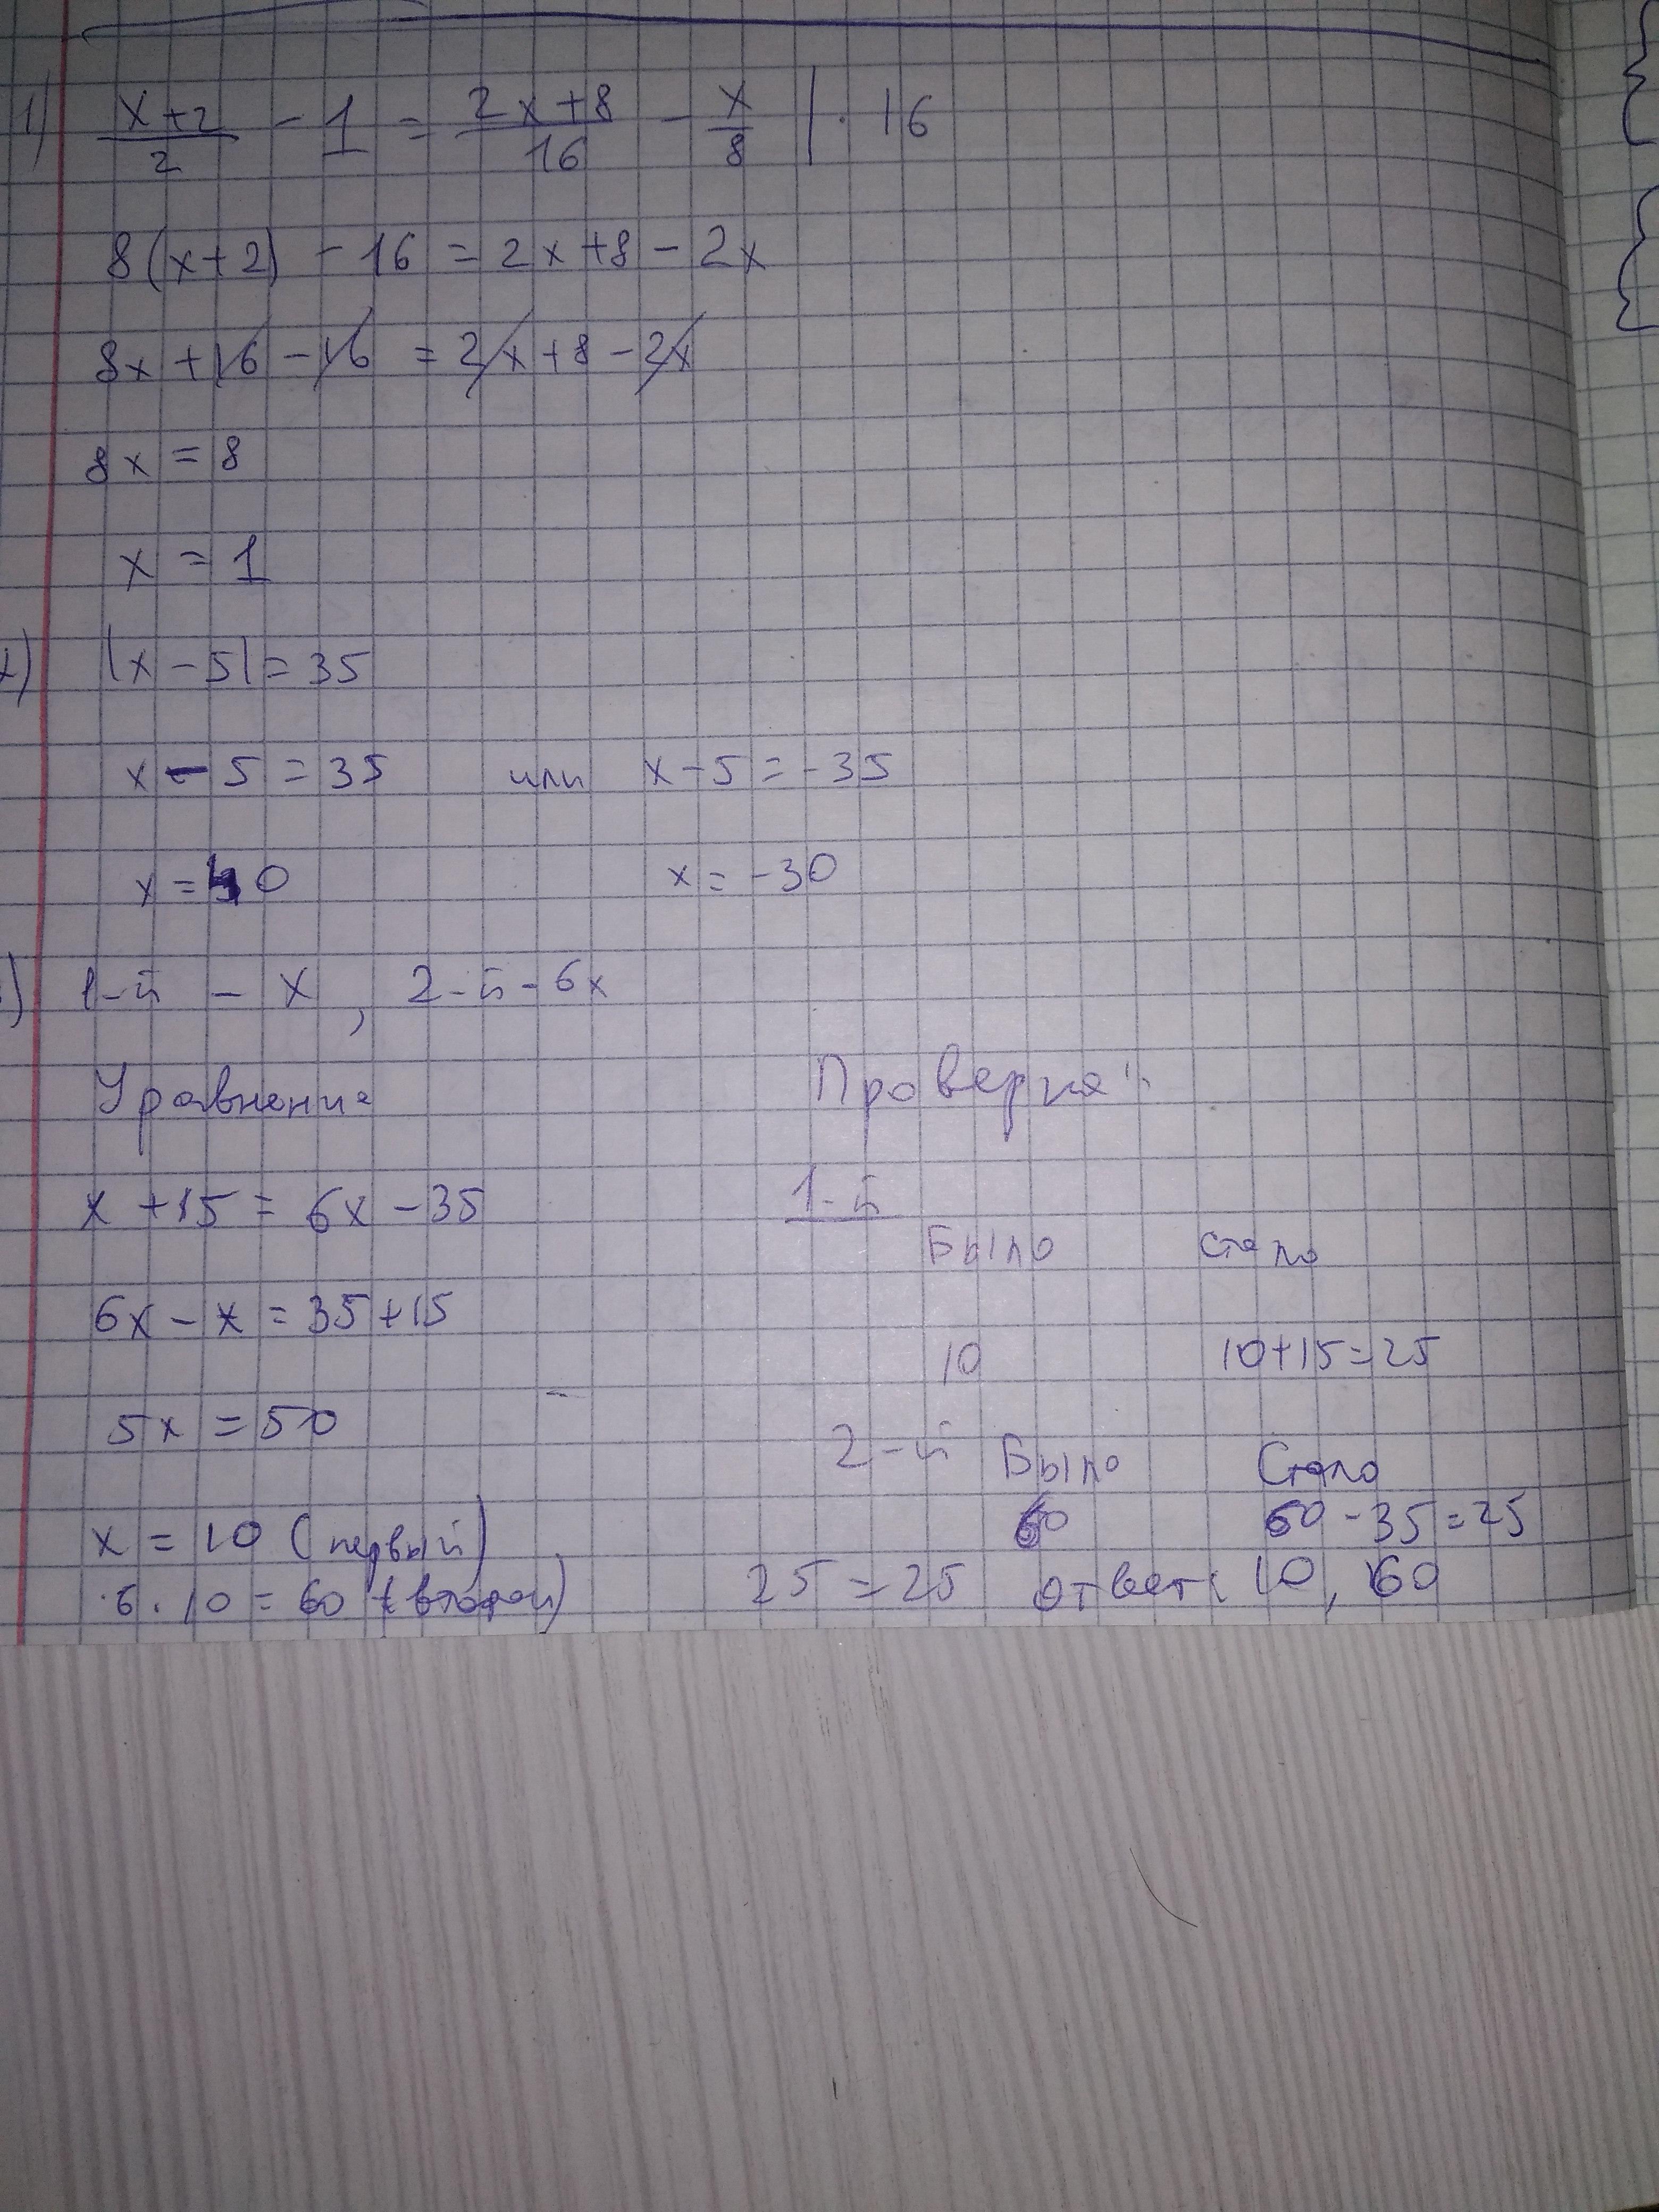 1) (x+2)/2 - 1 = (2x+8)/16 - x/8 | · 16
8(x+2) - 16 = 2x+8 - 2x
8x + 16 - 16 = 2x + 8 - 2x
8x = 8
x = 1
|x - 5| = 35
x - 5 = 35 или x - 5 = -35
x = 40 x = -30
1-й - x, 2-й - 6x
Уравнение
x + 15 = 6x - 35
6x - x = 35 + 15
5x = 50
x = 10 (первый)
6 · 10 = 60 (второй)
Проверка:
1-й
Было Стало
10 10+15=25
2-й Было Стало
60 60-35=25
25 = 25 Ответ: 10, 60